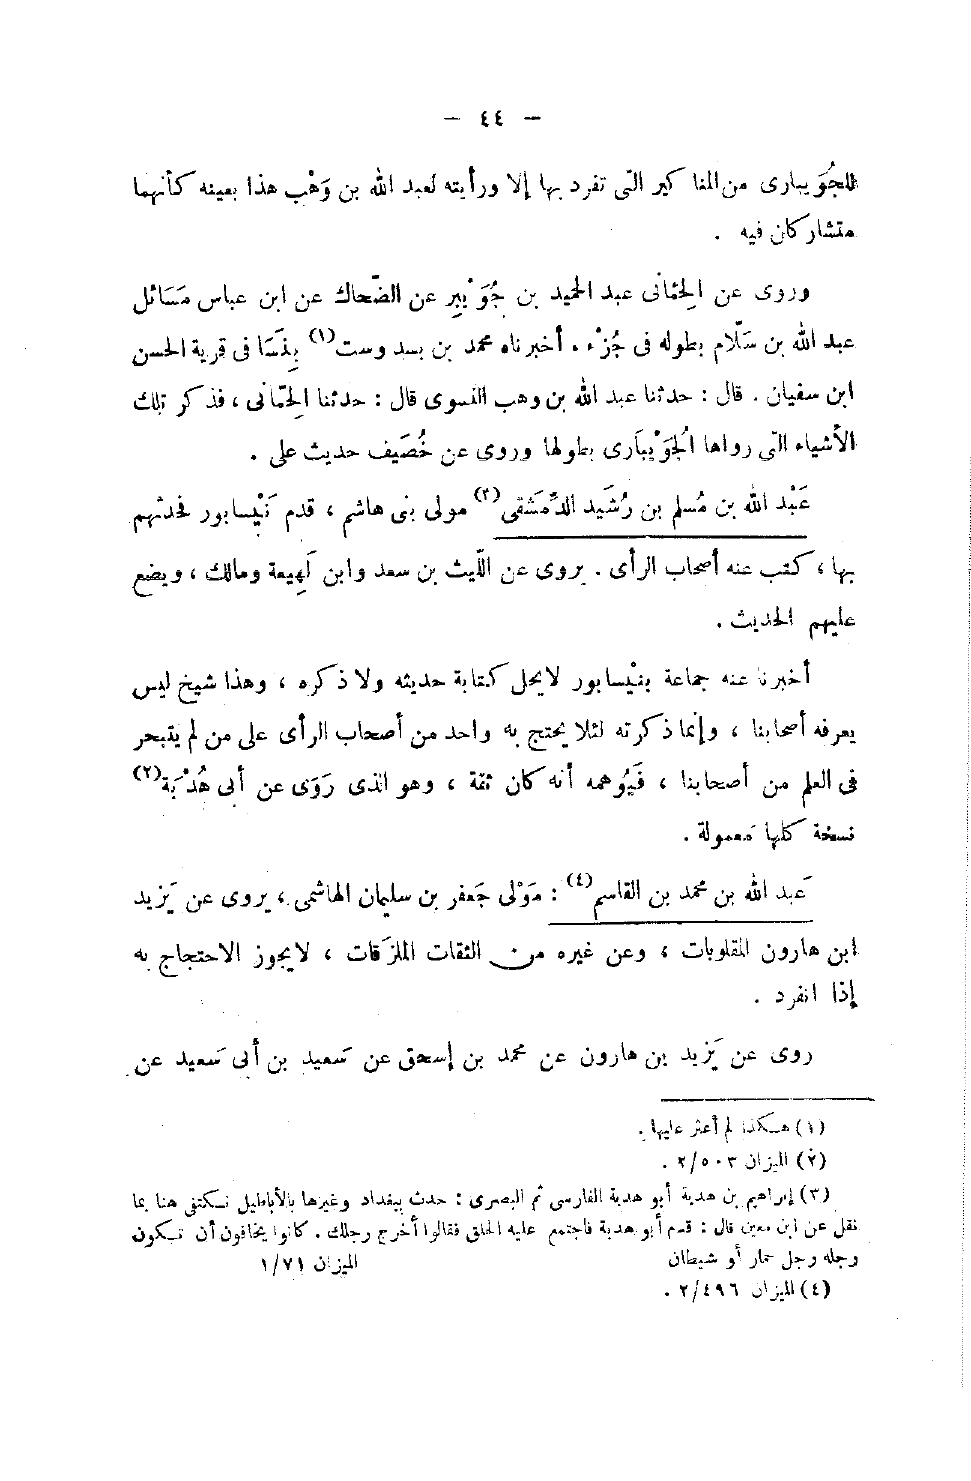 — ٤٤ —
للجُوَيبارى من المناكير التى تفرد بها إلا ورأيته لعبد الله بن وَهْب هذا بعينه كأنهما
متشاركان فيه .
وروى عن الِحمَّانى عبد الحميد بن جُوَيْبِر عن الضّحاك عن ابن عباس مَسَائل
عبد الله بن سَلّام بطوله فى جُزْء . أخبرناه محمد بن بسدوست(١) بِنَسَا فى قرية الحسن
ابن سفيان . قال : حدثنا عبد الله بن وهب النسوى قال : حدثنا الِحمّانى ، فذكر تلك
الأشياء التى رواها الْجَوْيبَارى بطولها وروى عن خُصَيف حديث على .
عَبْد الله بن مُسلم بن رُشَيد الدِّمَشقى(٢) مولى بنى هاشم ، قدم نَيْسابور فحدثهم
بها ، كتب عنه أصحاب الرأى . يروى عن اللَّيث بن سعد وابن لَهِيعة ومالك ، ويضع
عليهم الحديث .
أخبرنا عنه جماعة بنيْسابور لايحل كتابة حديثه ولا ذكره ، وهذا شيخ ليس
يعرفه أصحابنا ، وإنما ذكرته لئلا يحتج به واحد من أصحاب الرأى على من لم يتبحر
فى العلم من أصحابنا ، فَيُوهمه أنه كان ثقة ، وهو الذى رَوَى عن أبى هُدْبَة(٢)
نسخة كلها مَعمولة .
عَبد الله بن محمد بن القاسم(٤) : مَوْلى جَعفر بن سليمان الهاشمى ، يروى عن يَزيد
ابن هارون المقلوبات ، وعن غيره من الثقات الملزقات ، لايجوز الاحتجاج به
إذا انفرد .
روى عن يَزيد بن هارون عن محمد بن إسحق عن سَعيد بن أبى سَعيد عن
(١) هكذا لم أعثر عليها .
(٢) الميزان ٢/٥٠٣ .
(٣) إبراهيم بن هدبة أبو هدبة الفارسى ثم البصرى : حدث ببغداد وغيرها بالأباطيل نكتفى هنا بما
نقل عن ابن معين قال : قدم أبو هدبة فاجتمع عليه الخلق فقالوا أخرج رجلك . كانوا يخافون أن تكون
رجله رجل حمار أو شيطان الميزان ١/٧١
(٤) الميزان ٢/٤٩٦ .